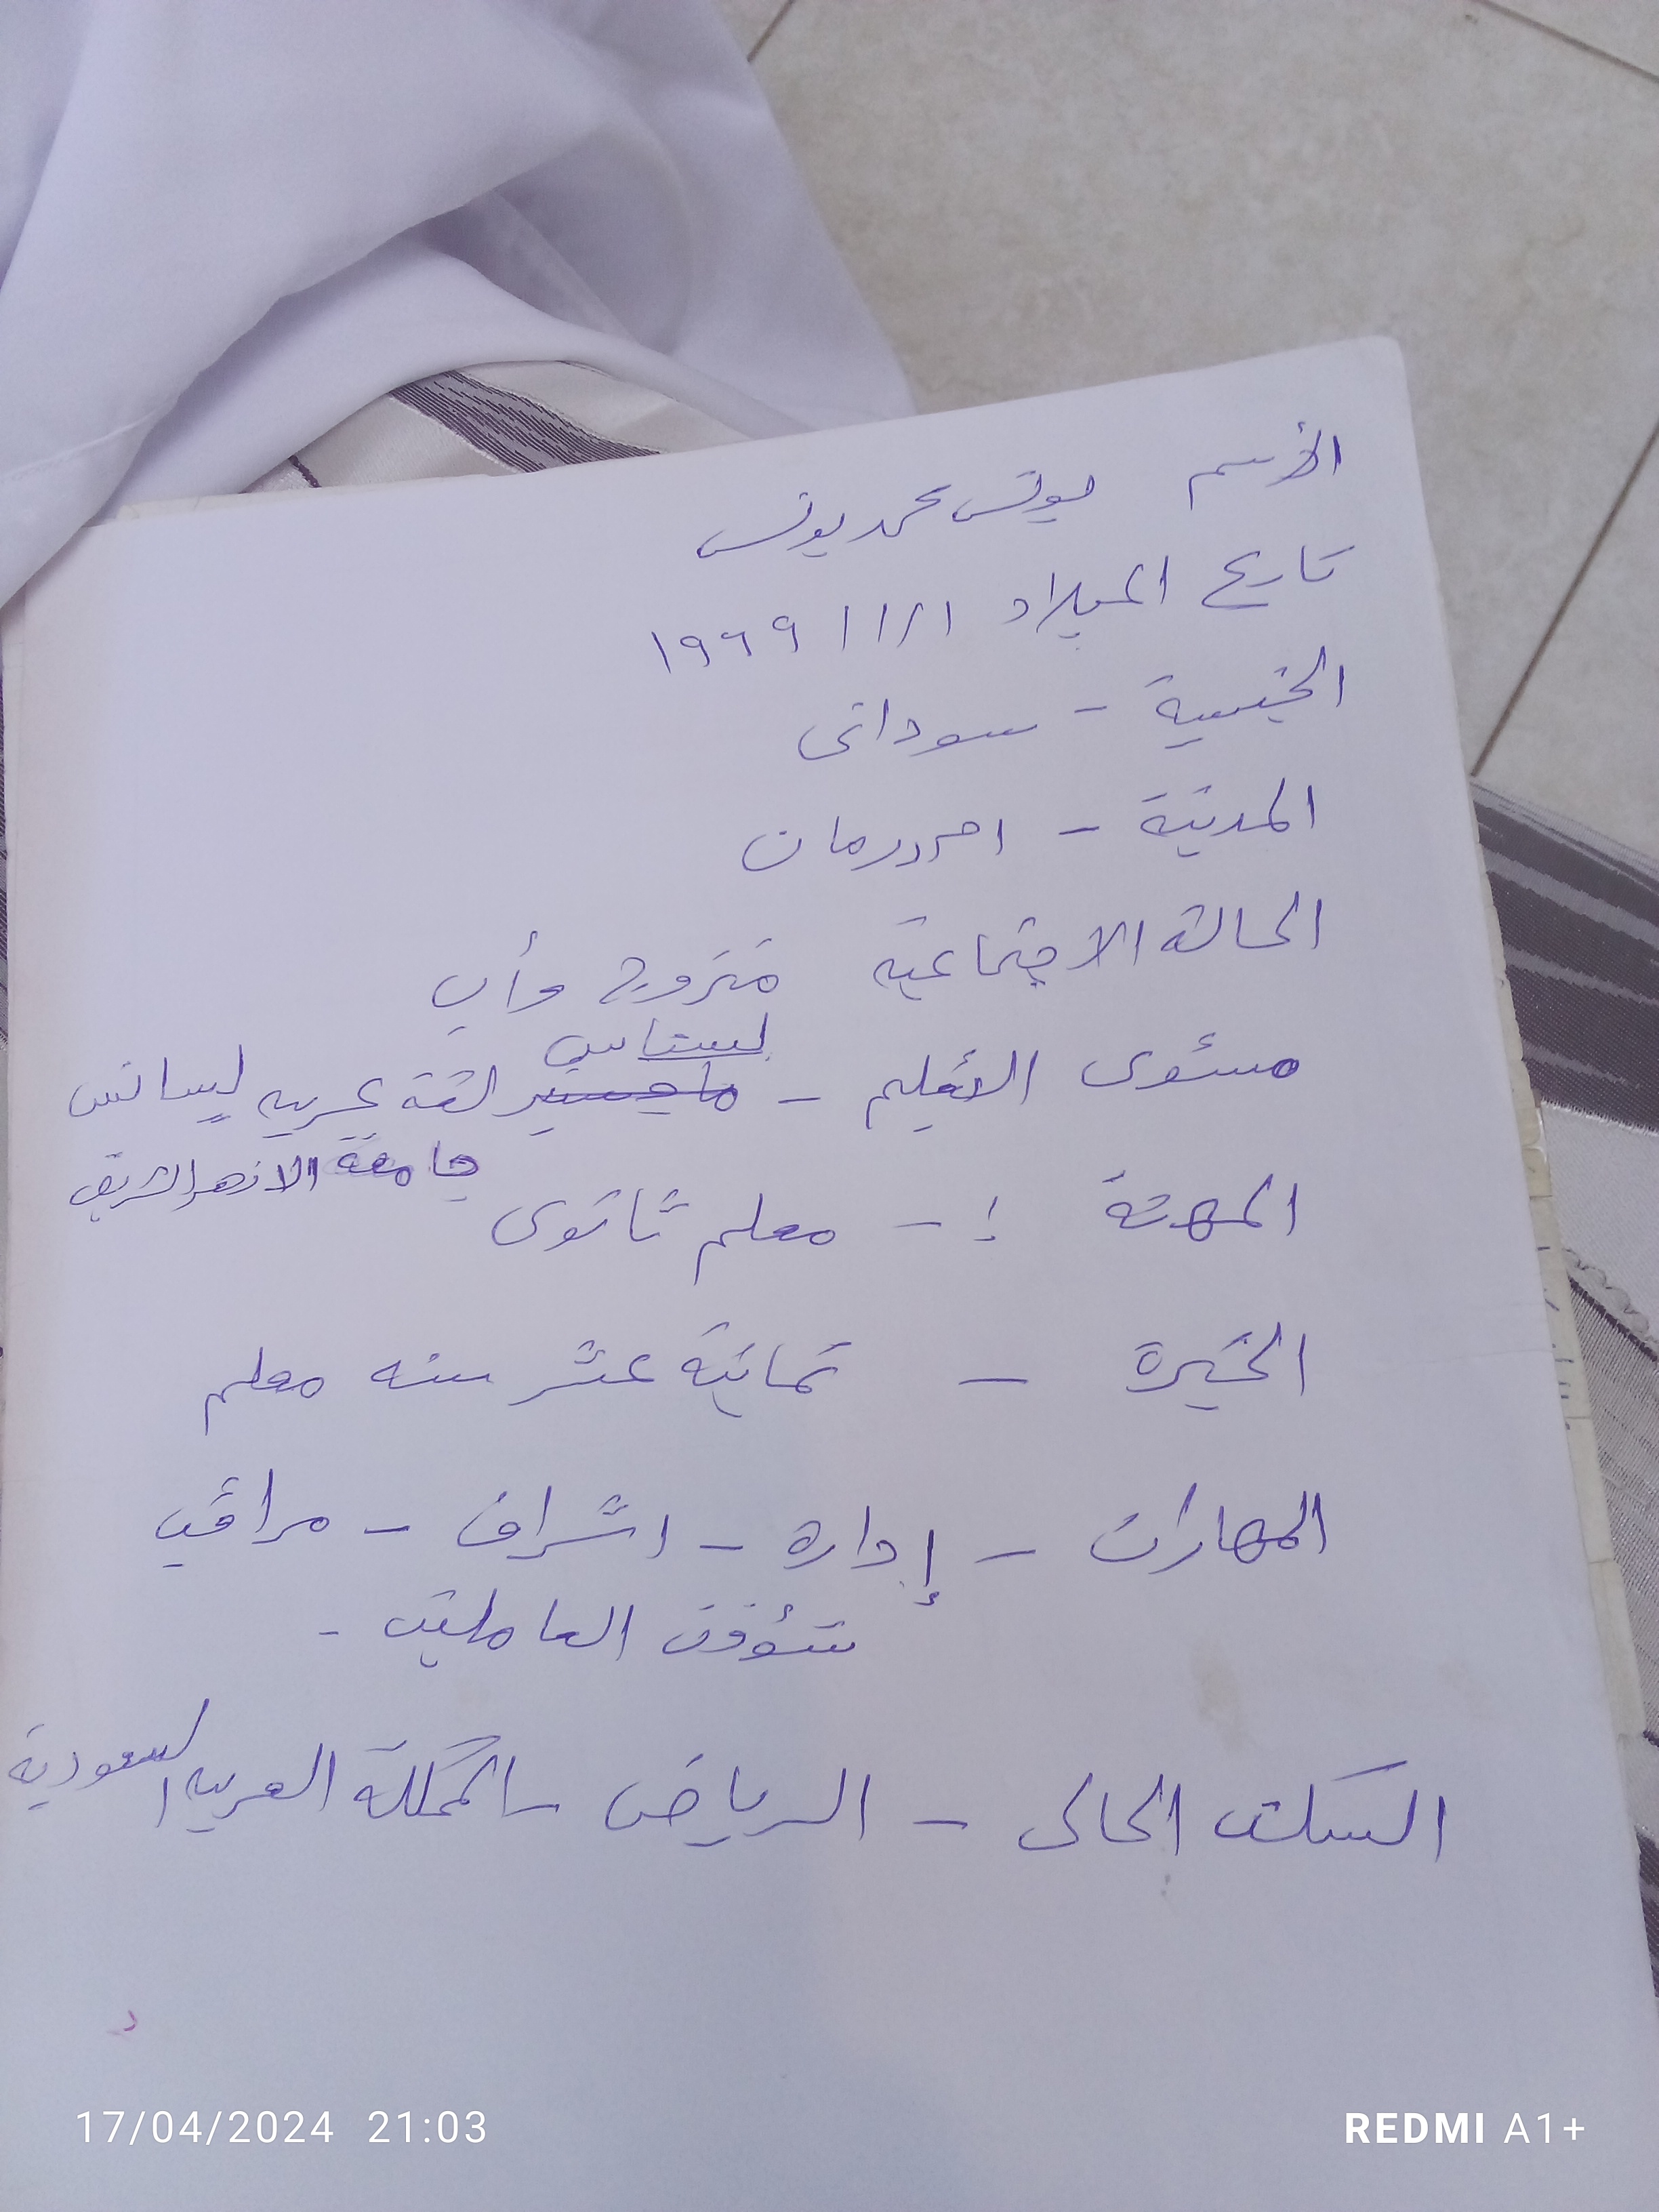 الأسم يونس محمد يونس
تاريخ الميلاد ١/١/١٩٦٩
الجنسية - سودانى
المدينة - امدرمان
الحالة الاجتماعية متزوج وأب
ليسانس
مستوى التعليم - ماجستير لغة عربيه ليسانس
جامعة الازهر الشريف
المهنة إ - معلم ثانوى
الخبرة - ثمانية عشر سنه معلم
المهارات - إدارة - اشراف - مراقب
شؤون العاملين -
السكن الحالى - الرياض - المملكة العربيه السعودية
17/04/2024 21:03
REDMI A1+